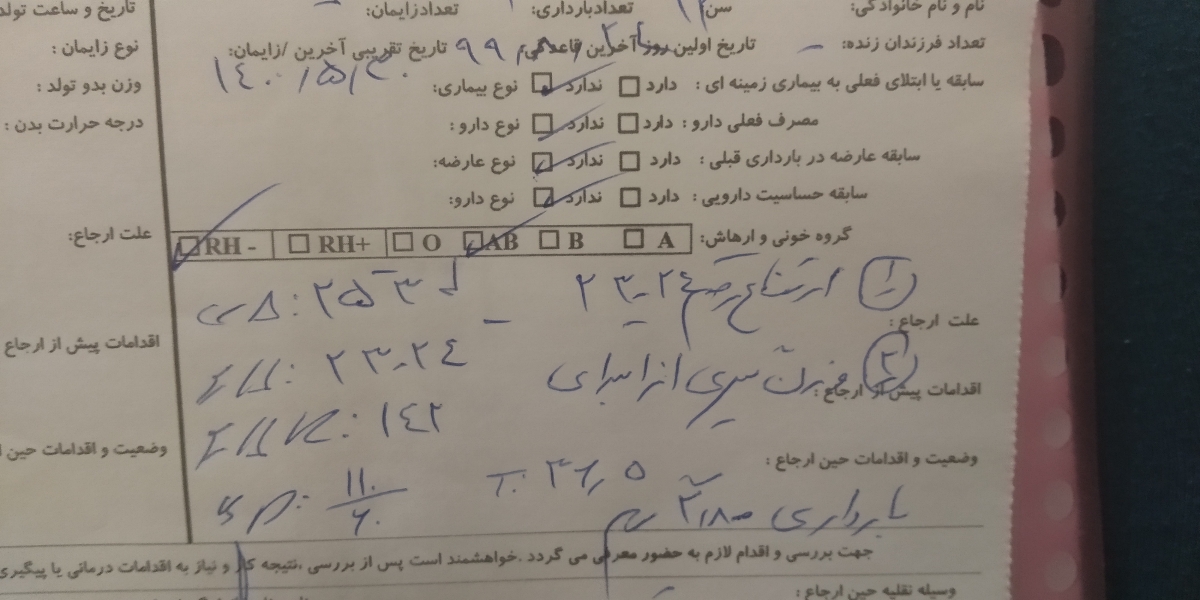 نام و نام خانوادگی: سن: تعدادبارداری: تعدادزایمان:
تعداد فرزندان زنده: – تاریخ اولین روز آخرین قاعدگی: تاریخ تقریبی آخرین /زایمان:
۱۴۰۰/۵/۳۰
سابقه یا ابتلای فعلی به بیماری زمینه ای : دارد ندارد نوع بیماری:
مصرف فعلی دارو : دارد ندارد نوع دارو :
سابقه عارضه در بارداری قبلی : دارد ندارد نوع عارضه:
سابقه حساسیت دارویی : دارد ندارد نوع دارو:
گروه خونی و ارهاش: A B AB O RH+ RH -
① ارتفاع رحم ۲۳-۲۴
علت ارجاع :
② وزن گیری از ابتدای
اقدامات پیش از ارجاع :
FH: ۲۳-۲۴
FHR: ۱۴۲
وضعیت و اقدامات حین ارجاع :
بارداری
T: ۳۶٫۵
BP: ۱۱۰/۶۰
جهت بررسی و اقدام لازم به حضور معرفی می گردد .خواهشمند است پس از بررسی ،نتیجه کار و نیاز به اقدامات درمانی یا پیگیری
وسیله نقلیه حین ارجاع :
تاریخ و ساعت تولد
نوع زایمان :
وزن بدو تولد :
درجه حرارت بدن :
علت ارجاع:
اقدامات پیش از ارجاع
وضعیت و اقدامات حین